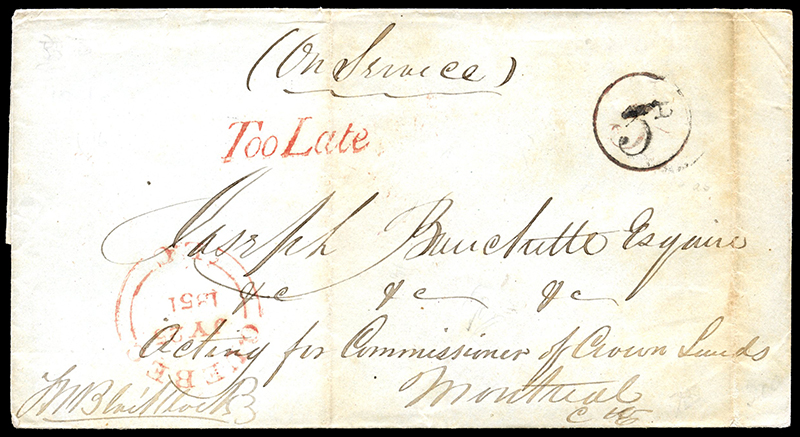 (On Service)
Too Late
3D
Joseph Bouchette Esquire
&c &c &c
1851
QUEBEC
Acting for Commissioner of Crown Lands
Montreal